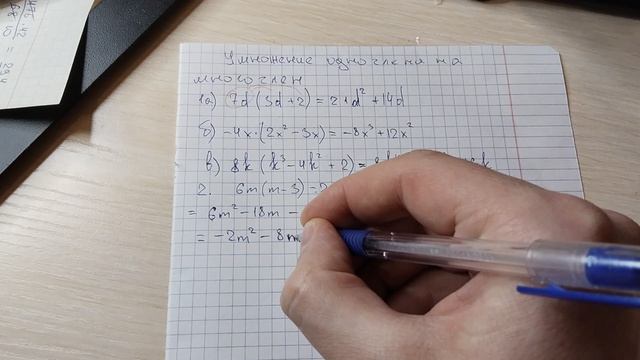 Умножение одночлена на
многочлен
1а) 7d (3d + 2) = 21d² + 14d
б) -4x·(2x² - 3x) = -8x³ + 12x²
в) 8k (k³ - 4k² + 2) =
2. 6m(m - 3) -
= 6m² - 18m -
= -2m² - 8m